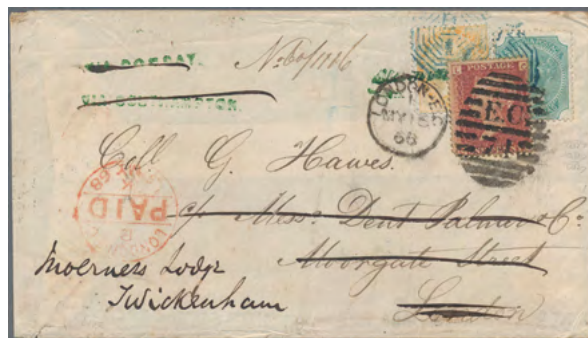 VIA BOMBAY.
VIA SOUTHAMPTON.
POSTAGE
LONDON·E.C
MY 15
68
E.C
Coll G. Hawes.
c/o Messrs Dent Palmer & Co
Moorgate Street
London
LONDON
PAID
68
Moerners Lodge
Twickenham